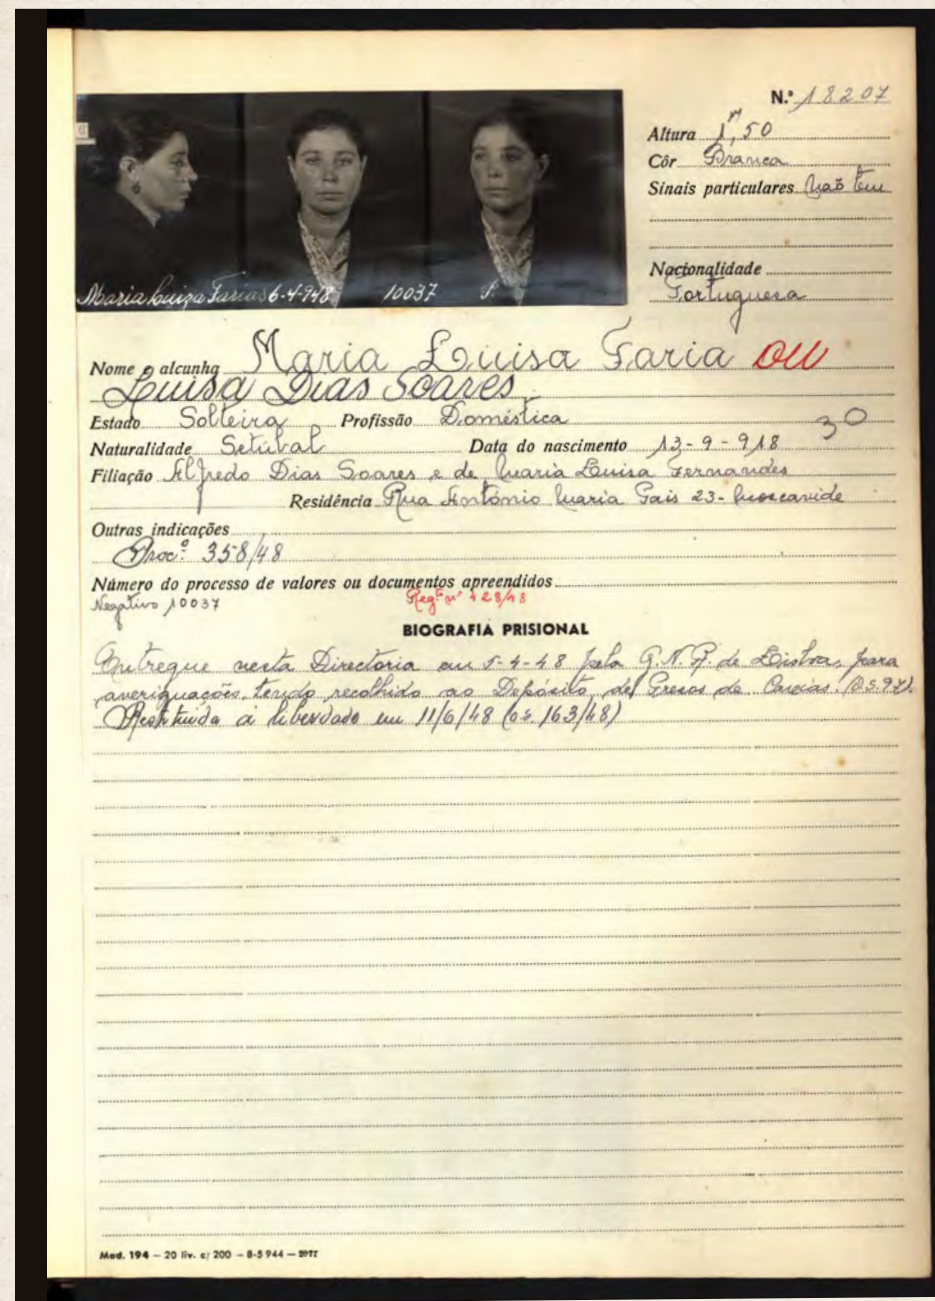 N.º 18207
Altura 1,m50
Côr Branca
Sinais particulares Não tem
Nacionalidade
Portuguesa
Maria Luiza Farias 6-4-948 10037 S.
Nome e alcunha Maria Luisa Faria ou
Luisa Dias Soares
Estado Solteira Profissão Doméstica 30
Naturalidade Setúbal Data do nascimento 13-9-918
Filiação Alfredo Dias Soares e de Maria Luisa Fernandes
Residência Rua António Maria Pais 23 - Moscavide
Outras indicações
Proc.º 358/48
Número do processo de valores ou documentos apreendidos
Negativo 10037 Reg.º nº 428/48
BIOGRAFIA PRISIONAL
Entregue nesta Directoria em 5-4-48 pela G.N.R. de Lisboa, para
averiguações, tendo recolhido ao Depósito de Presos de Caxias. (O.S. 97).
Restituida á liberdade em 11/6/48 (o.s. 163/48)
Mod. 194 – 20 liv. c/ 200 – 8-5 944 –